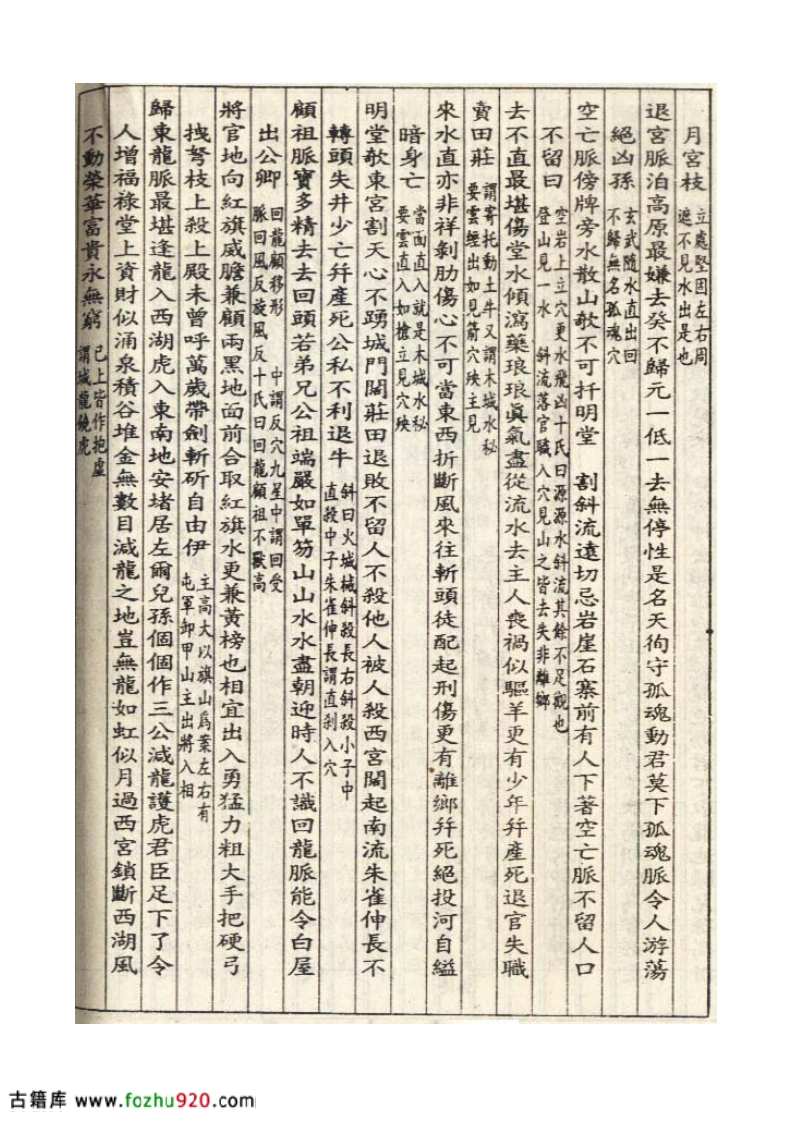 月宮枝 立處堅固左右周遮不見水出是也
退宮脈泊高原最嫌去癸不歸元一低一去無停性是名天徇守孤魂動君莫下孤魂脈令人游蕩
絕凶孫 玄武隨水直出回不歸無名孤魂穴
空亡脈傍牌旁水散山欹不可扦明堂 割斜流遠切忌岩崖石寨前有人下著空亡脈不留人口
不留曰 空岩上立穴更水飛凶十氏曰源源水斜流其餘不足觀也登山見一水 斜流落官驗入穴見山之皆去失非離鄉
去不直最堪傷堂水傾瀉藥琅琅眞氣盡從流水去主人喪禍似驅羊更有少年幷產死退官失職
賣田莊 謂寄托動土牛又謂木城水秘要雲經出如見箭穴殃主見
來水直亦非祥剝肋傷心不可當東西折斷風來往斬頭徒配起刑傷更有離鄉幷死絕投河自縊
暗身亡 當面直入就是木城水秘要雲直入如槍立見穴殃
明堂欹東宮割天心不踴城門闊莊田退敗不留人不殺他人被人殺西宮闊起南流朱雀伸長不
轉頭失井少亡幷產死公私不利退牛 斜曰火城械斜殺長右斜殺小子中直殺中子朱雀伸長謂直刹入穴
顧祖脈寶多精去去回頭若弟兄公祖端嚴如單笏山山水水盡朝迎時人不識回龍脈能令白屋
出公卿 回龍顧移形 中謂反穴九星中謂回受脈回風反旋風反十氏曰回龍顧祖不獸高
將官地向紅旗威膽兼顧兩黑地面前合取紅旗水更兼黃榜也相宜出入勇猛力粗大手把硬弓
拽弩枝上殺上殿未曾呼萬歲帶劍斬斫自由伊 主高大以旗山爲案左右有屯軍卸甲山主出將入相
歸東龍脈最堪逢龍入西湖虎入東南地安堵居左爾兒孫個個作三公減龍護虎君臣足下了令
人增福祿堂上資財似涌泉積谷堆金無數目減龍之地豈無龍如虹似月過西宮鎖斷西湖風
不動榮華富貴永無窮 已上皆作抱虛謂城龍饒虎
古籍库 www.fozhu920.com